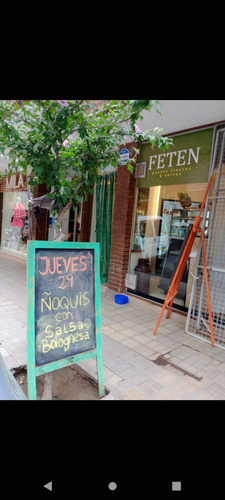 FETEN
JUEVES
29
ÑOQUIS
con
SALSA
Bolognesa